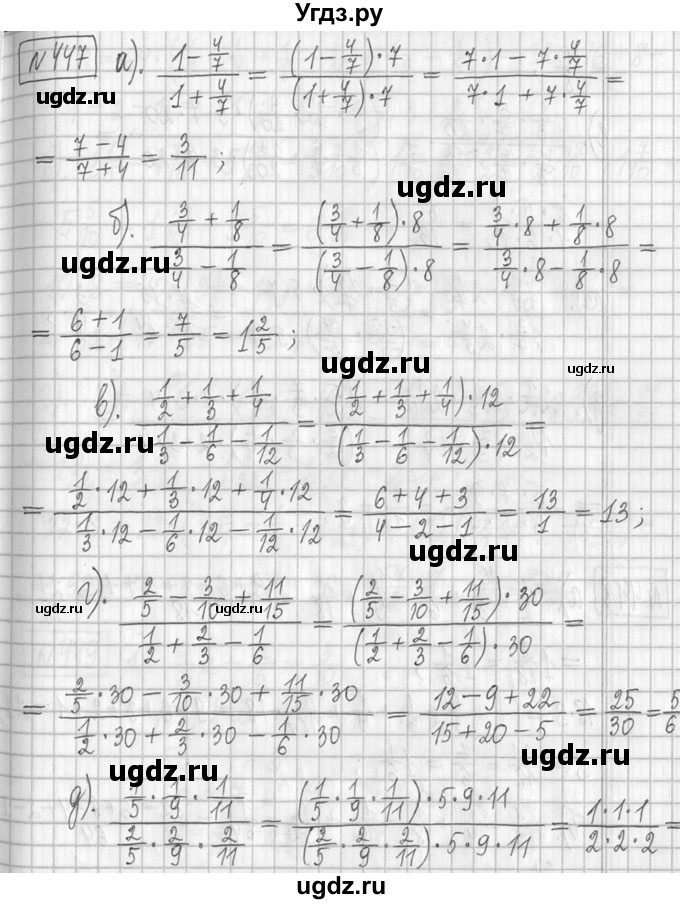 Угдз.ру
№447 а). (1 - 4/7)/(1 + 4/7) = ((1 - 4/7)·7)/((1 + 4/7)·7) = (7·1 - 7·4/7)/(7·1 + 7·4/7) =
ugdz.ru ugdz.ru
= (7 - 4)/(7 + 4) = 3/11;
ugdz.ru
б). (3/4 + 1/8)/(3/4 - 1/8) = ((3/4 + 1/8)·8)/((3/4 - 1/8)·8) = (3/4·8 + 1/8·8)/(3/4·8 - 1/8·8) =
ugdz.ru ugdz.ru
= (6 + 1)/(6 - 1) = 7/5 = 1 2/5;
ugdz.ru ugdz.ru
в). (1/2 + 1/3 + 1/4)/(1/3 - 1/6 - 1/12) = ((1/2 + 1/3 + 1/4)·12)/((1/3 - 1/6 - 1/12)·12) =
ugdz.ru
= (1/2·12 + 1/3·12 + 1/4·12)/(1/3·12 - 1/6·12 - 1/12·12) = (6 + 4 + 3)/(4 - 2 - 1) = 13/1 = 13;
ugdz.ru
г). (2/5 - 3/10 + 11/15)/(1/2 + 2/3 - 1/6) = ((2/5 - 3/10 + 11/15)·30)/((1/2 + 2/3 - 1/6)·30) =
ugdz.ru ugdz.ru
= (2/5·30 - 3/10·30 + 11/15·30)/(1/2·30 + 2/3·30 - 1/6·30) = (12 - 9 + 22)/(15 + 20 - 5) = 25/30 = 5/6
ugdz.ru
д). (1/5·1/9·1/11)/(2/5·2/9·2/11) = ((1/5·1/9·1/11)·5·9·11)/((2/5·2/9·2/11)·5·9·11) = (1·1·1)/(2·2·2) =
ugdz.ru ugdz.ru
ugdz.ru